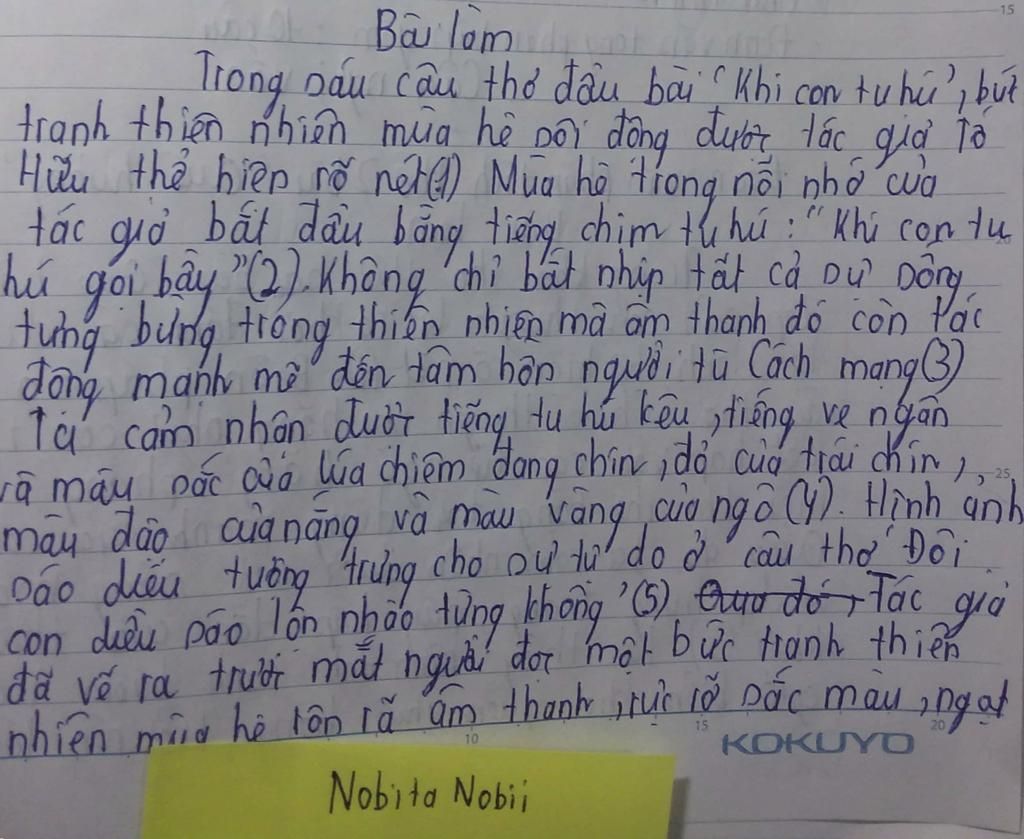 15
Bài làm
Trong sáu câu thơ đầu bài "Khi con tu hú", bức
tranh thiên nhiên mùa hè sôi động được tác giả Tố
Hữu thể hiện rõ nét(1) Mùa hè trong nỗi nhớ của
tác giả bắt đầu bằng tiếng chim tu hú: "Khi con tu
hú gọi bầy"(2). Không chỉ bắt nhịp tất cả sự sống
tưng bừng trong thiên nhiên mà âm thanh đó còn tác
động mạnh mẽ đến tâm hồn người tù Cách mạng(3)
Ta cảm nhận được tiếng tu hú kêu, tiếng ve ngân
và màu sắc của lúa chiêm đang chín, đỏ của trái chín,
25
màu đào của nắng và màu vàng của ngô(4). Hình ảnh
sáo diều tượng trưng cho sự tự do ở câu thơ "Đôi
con diều sáo lộn nhào từng không"(5) Qua đó, Tác giả
đã vẽ ra trước mắt người đọc một bức tranh thiên
nhiên mùa hè rộn rã âm thanh, rực rỡ sắc màu, ngạt
10
15
20
KOKUYO
Nobita Nobii